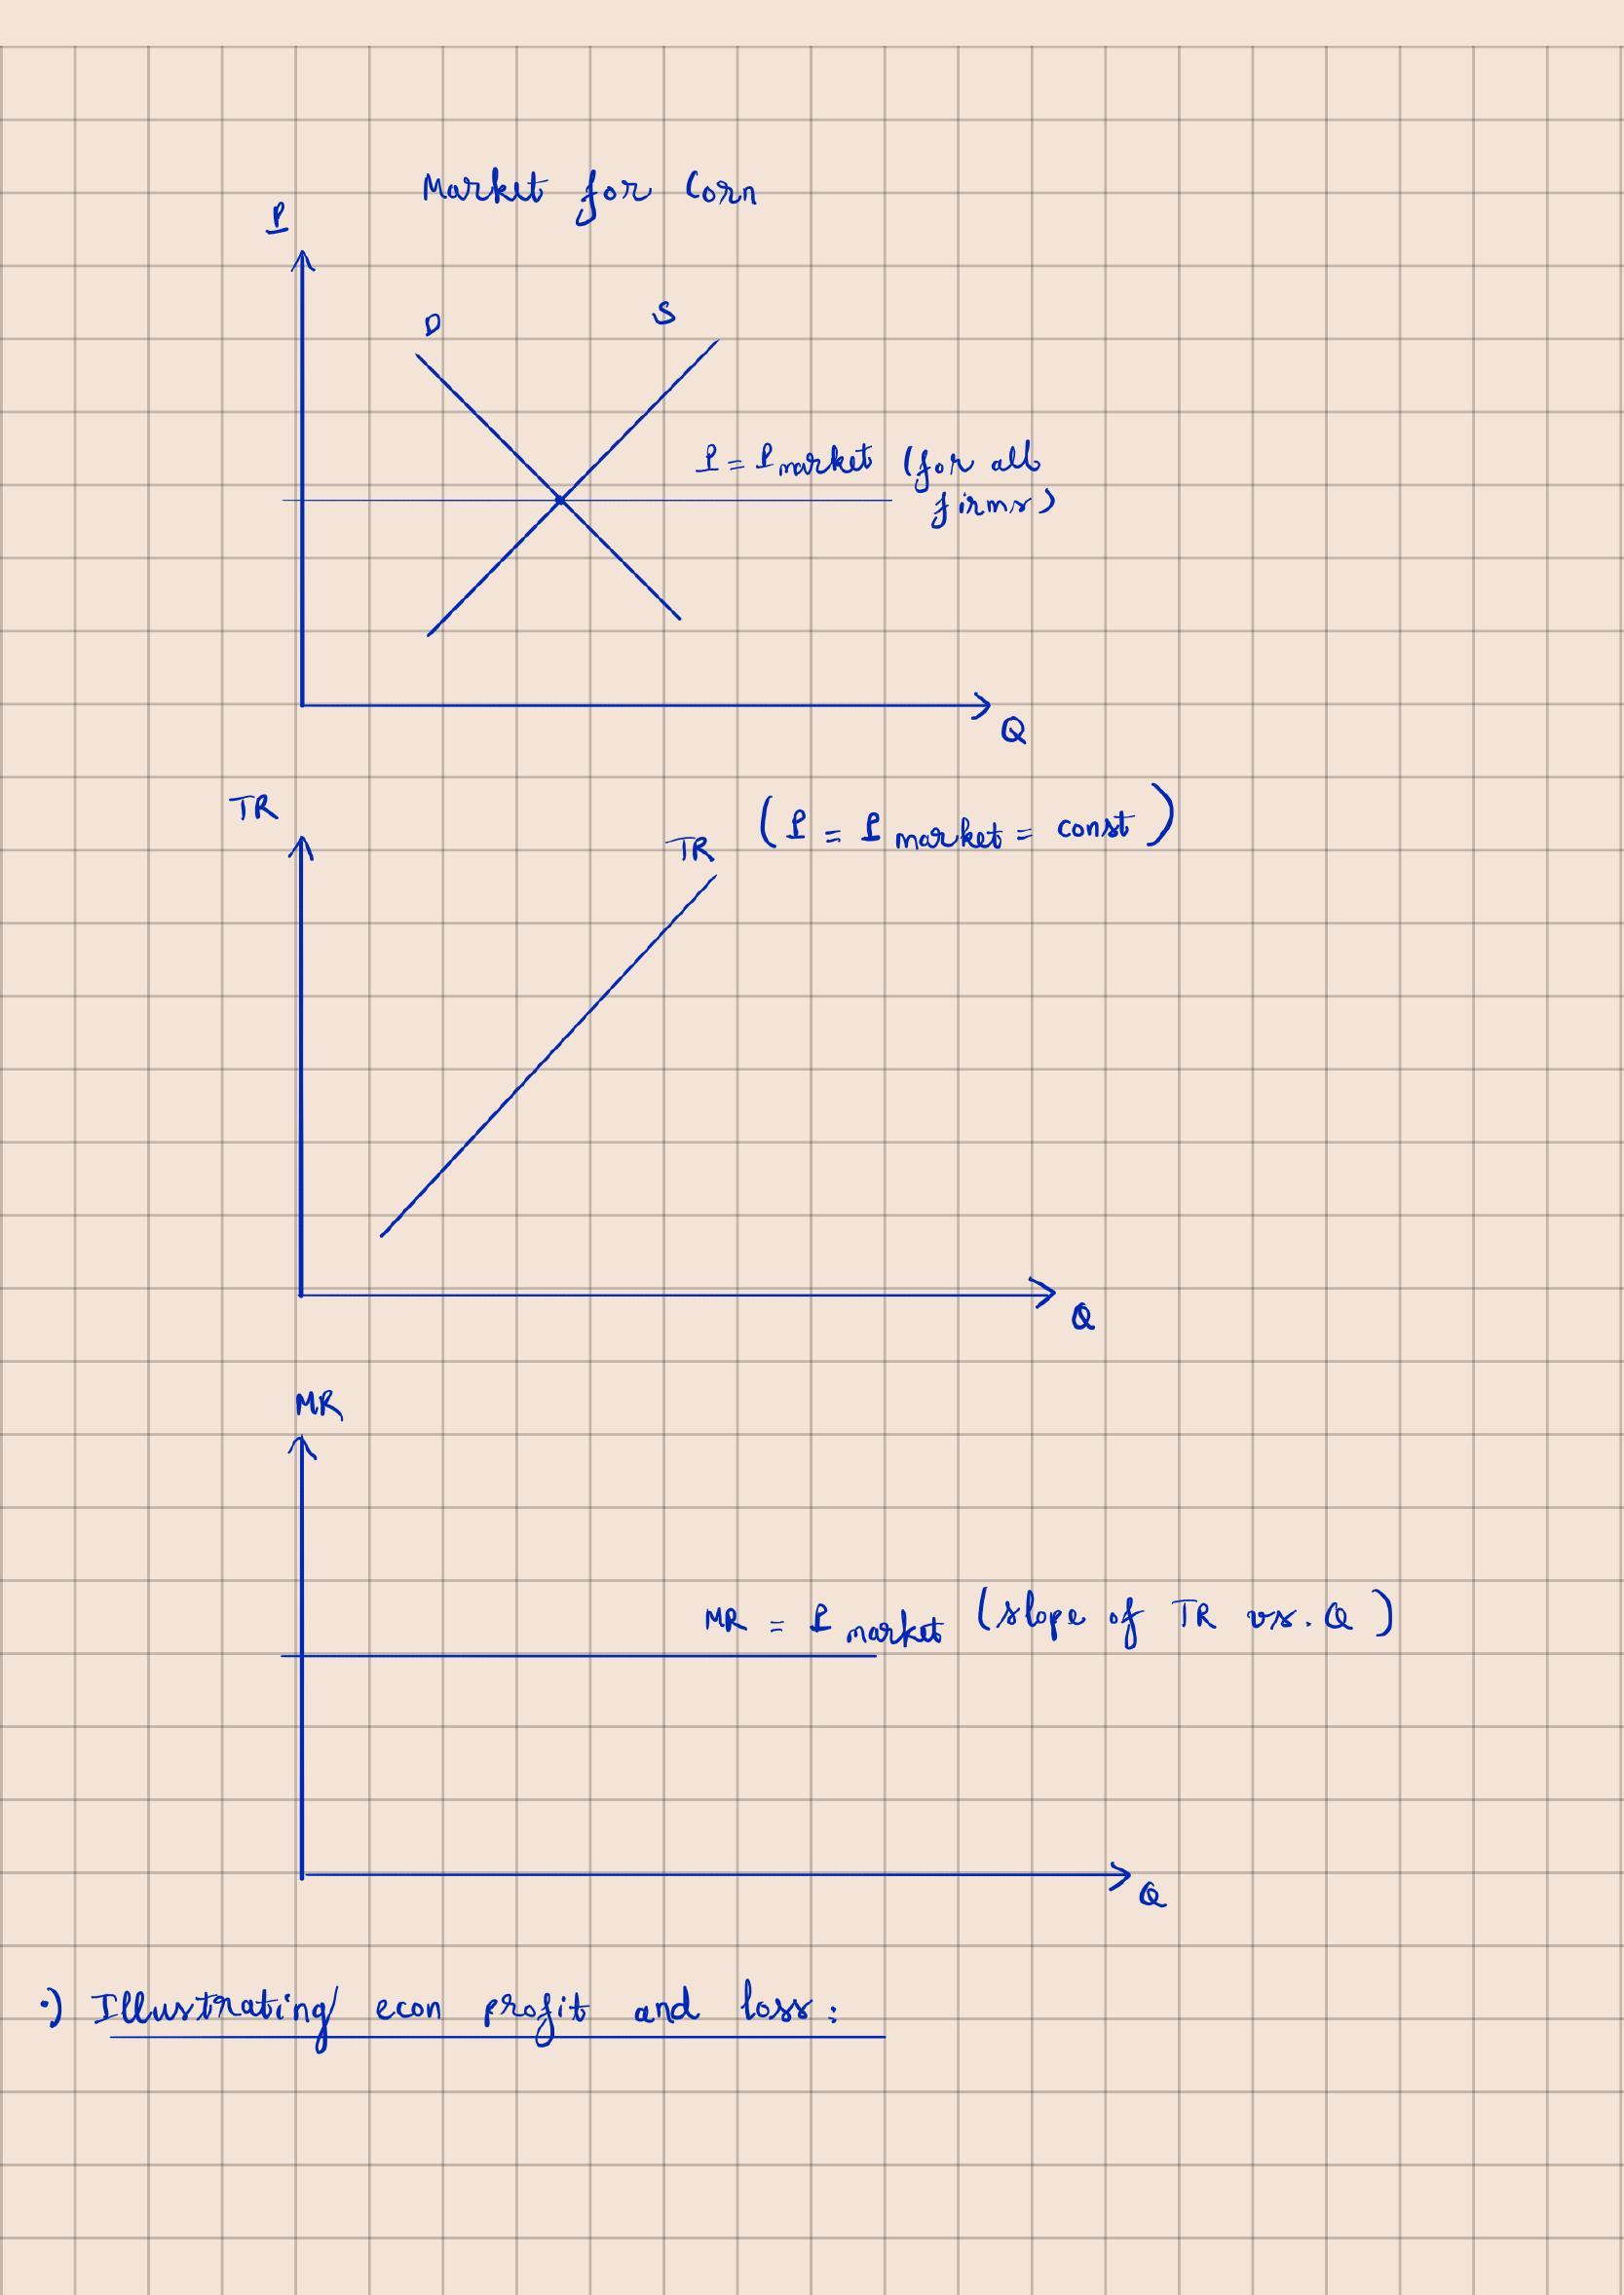 Market for Corn
P
D
S
P = P market (for all
firms)
Q
TR
TR (P = P market = const)
Q
MR
MR = P market (slope of TR vs. Q)
Q
•) Illustrating econ profit and loss: